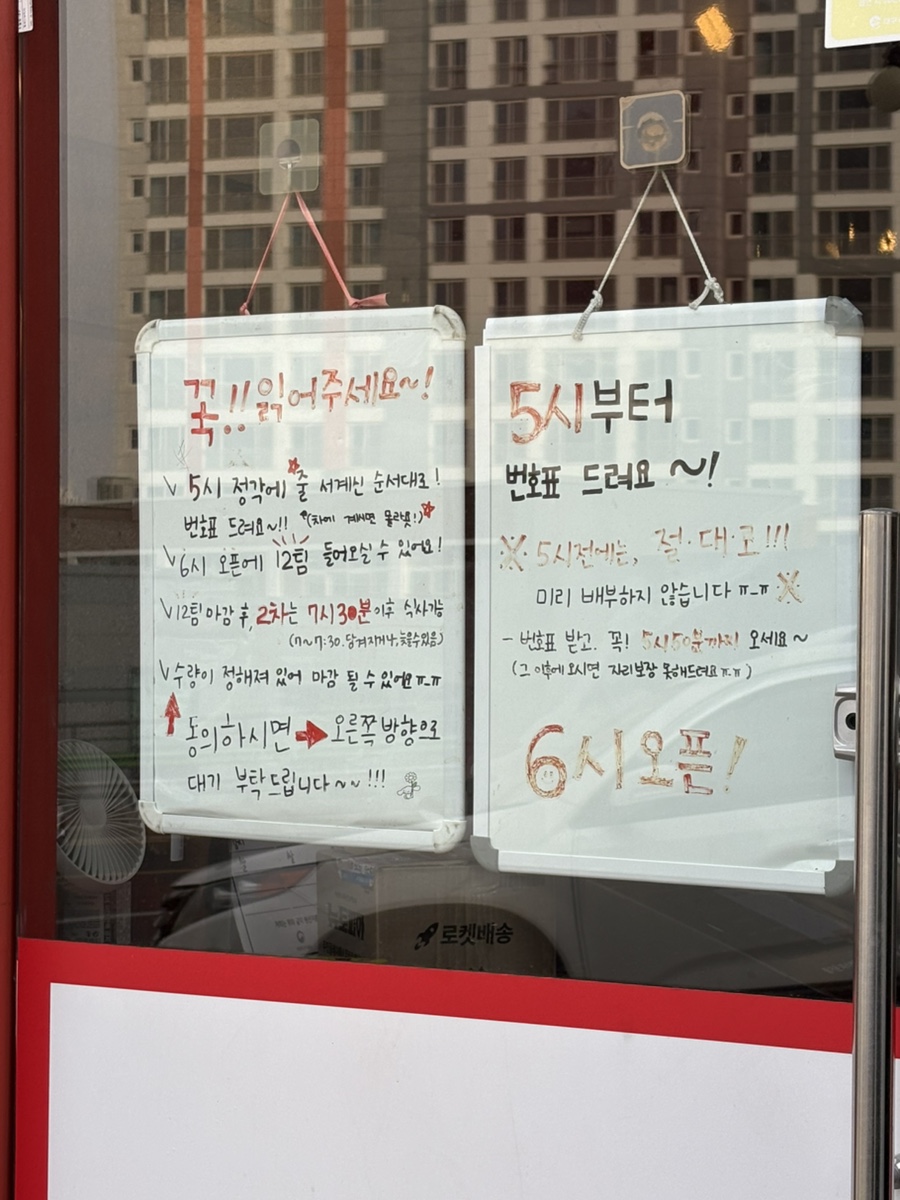 꼭!! 읽어주세요~!
∨ 5시 정각에 줄 서계신 순서대로!
번호표 드려요~!! (차에 계시면 몰라욧!)
∨ 6시 오픈에 12팀 들어오실 수 있어요!
∨ 12팀 마감 후, 2차는 7시30분이후 식사가능
(7~7:30. 당겨지거나, 늦을수있음)
∨ 수량이 정해져 있어 마감 될 수 있어요ㅠ-ㅠ
동의하시면 ➡ 오른쪽 방향으로
대기 부탁드립니다~~!!!
5시부터
번호표 드려요~!
※ 5시전에는, 절·대·로!!!
미리 배부하지 않습니다 ㅠ-ㅠ ※
- 번호표 받고. 꼭! 5시50분까지 오세요~
(그 이후에 오시면 자리보장 못해드려요ㅠ.ㅠ)
6시오픈!
로켓배송